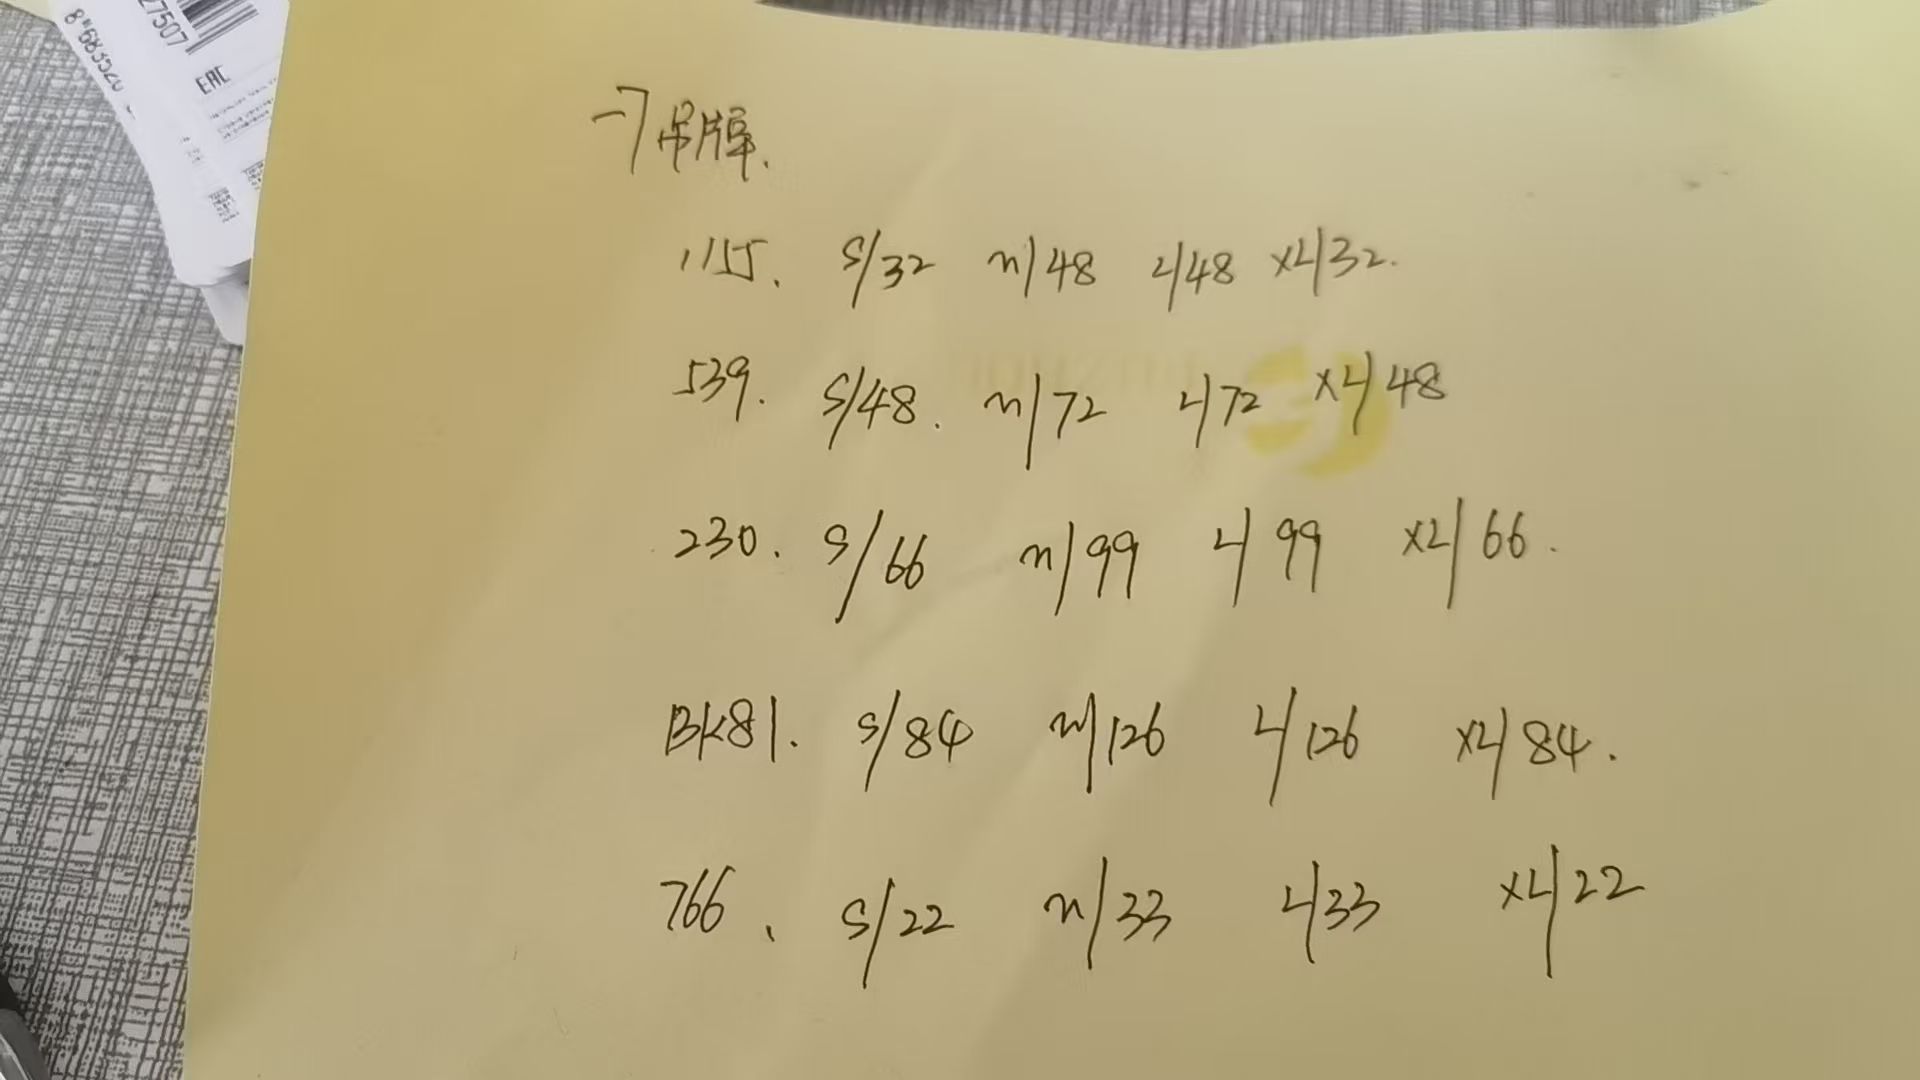 27507
8"683520
EAC
一7吊牌.
1155. S/32 m/48 L/48 XL/32.
539. S/48. m/72 L/72 XL/48
230. S/66 m/99 L/99 XL/66.
BK81. S/84 m/126 L/126 XL/84.
766. S/22 m/33 L/33 XL/22